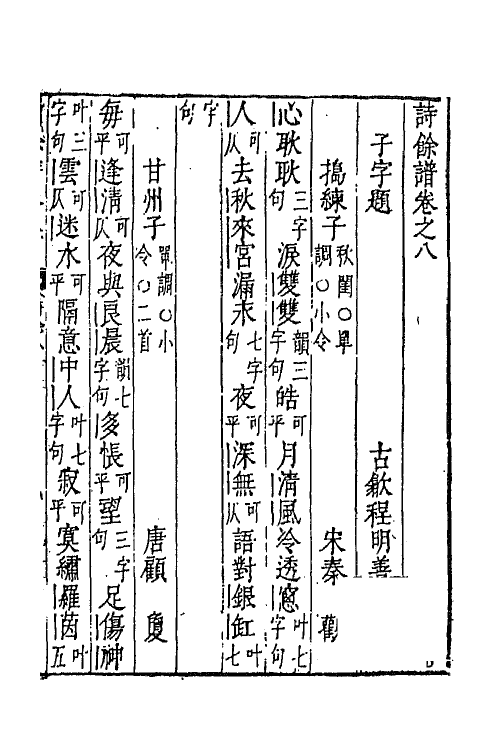 詩餘譜卷之八
子字題　古歙程明善
搗練子秋閨○單調○小令　宋秦觀
心耿耿三字句淚雙雙韻三字句皓可平月清風冷透窻叶七字句
人可仄去秋來宮漏永七字句夜可平深無可仄語對銀缸叶七
字句
甘州子單調○小令○二首　唐顧夐
每可平逢清可仄夜與良晨韻七字句多悵可平望三字句足傷神
叶三字句雲可仄迷水可平隔意中人叶七字句寂可平寞繡羅茵叶五